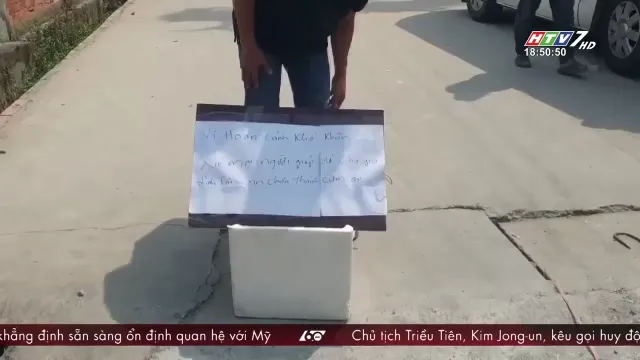 HTV7 HD
18:50:50
Vì Hoàn cảnh khó khăn
Xin mọi người giúp đỡ cho gia
đình tôi xin chân thành cảm ơn
khẳng định sẵn sàng ổn định quan hệ với Mỹ 60 Chủ tịch Triều Tiên, Kim Jong-un, kêu gọi huy độ